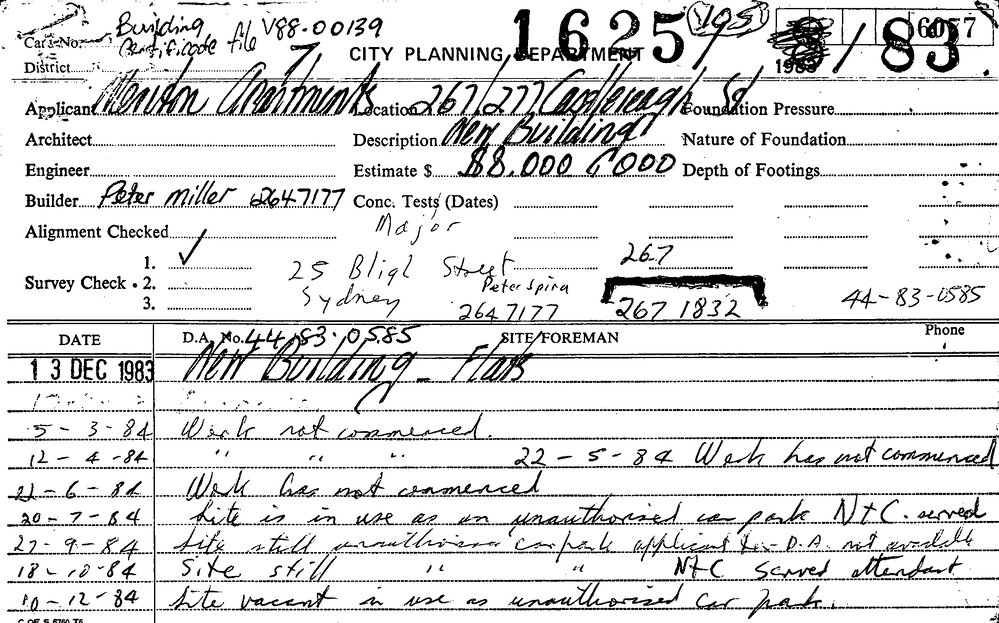 Building V88-00139
Certificate file
1625/83 105 6077
Card No.
CITY PLANNING DEPARTMENT 198
District
Applicant Apartments Location 267/277 Castlereagh St Foundation Pressure
Architect Description New Building Nature of Foundation
Engineer Estimate $ $8.000 000 Depth of Footings
Builder Peter Miller 2647177 Conc. Tests (Dates)
Alignment Checked Major
1. ✓ 25 Bligh Street 267
Survey Check • 2. Sydney Peter Spira
3. 2647177 267 1832 44-83-0585
DATE D.A. No. 44.83.0585 SITE/FOREMAN Phone
13 DEC 1983 New Building - Flats
5-3-84 Work not commenced.
12-4-84 " " " 22-5-84 Work has not commenced
21-6-84 Work has not commenced
20-7-84 Site is in use as an unauthorised car park N+C. served
27-9-84 Site still unauthorised carpark applicant D.A. not available
18-10-84 Site still " " N+C served attendant
10-12-84 Site vacant in use as unauthorised car park.
C OF S 5760 T6